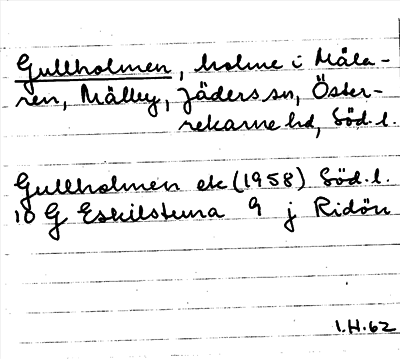 Gullholmen, holme i Mäla-
ren, Mälby, Jäders sn, Öster-
rekarne hd, Söd. l.
Gullholmen ek (1958) Söd. l.
10 G Eskilstuna 9 j Ridön
I.H.62